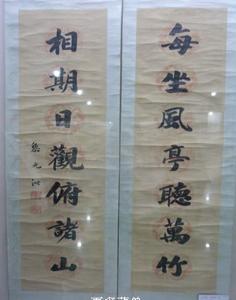 每坐風亭聽萬竹
相期日觀俯諸山